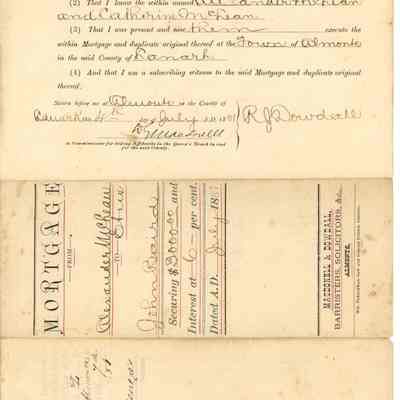 (2) That I know the within named Alexander McLean
and Catherine McLean
(3) That I was present and saw them execute the
within Mortgage and duplicate original thereof at the Town of Almonte
in the said County of Lanark
(4) And that I am a subscribing witness to the said Mortgage and duplicate original
thereof.
Sworn before me at Almonte in the County of
Lanark this day of July 18
R J Dowdall
A Commissioner for taking Affidavits in the Queen's Bench in and
for the said County.
MORTGAGE
FROM
Alexander McLean
TO
John Baird
Securing $3000.00 and
Interest at 6 per cent.
Dated A.D. July 188
MACDONELL & DOWDALL,
BARRISTERS, SOLICITORS, &c.
ALMONTE.